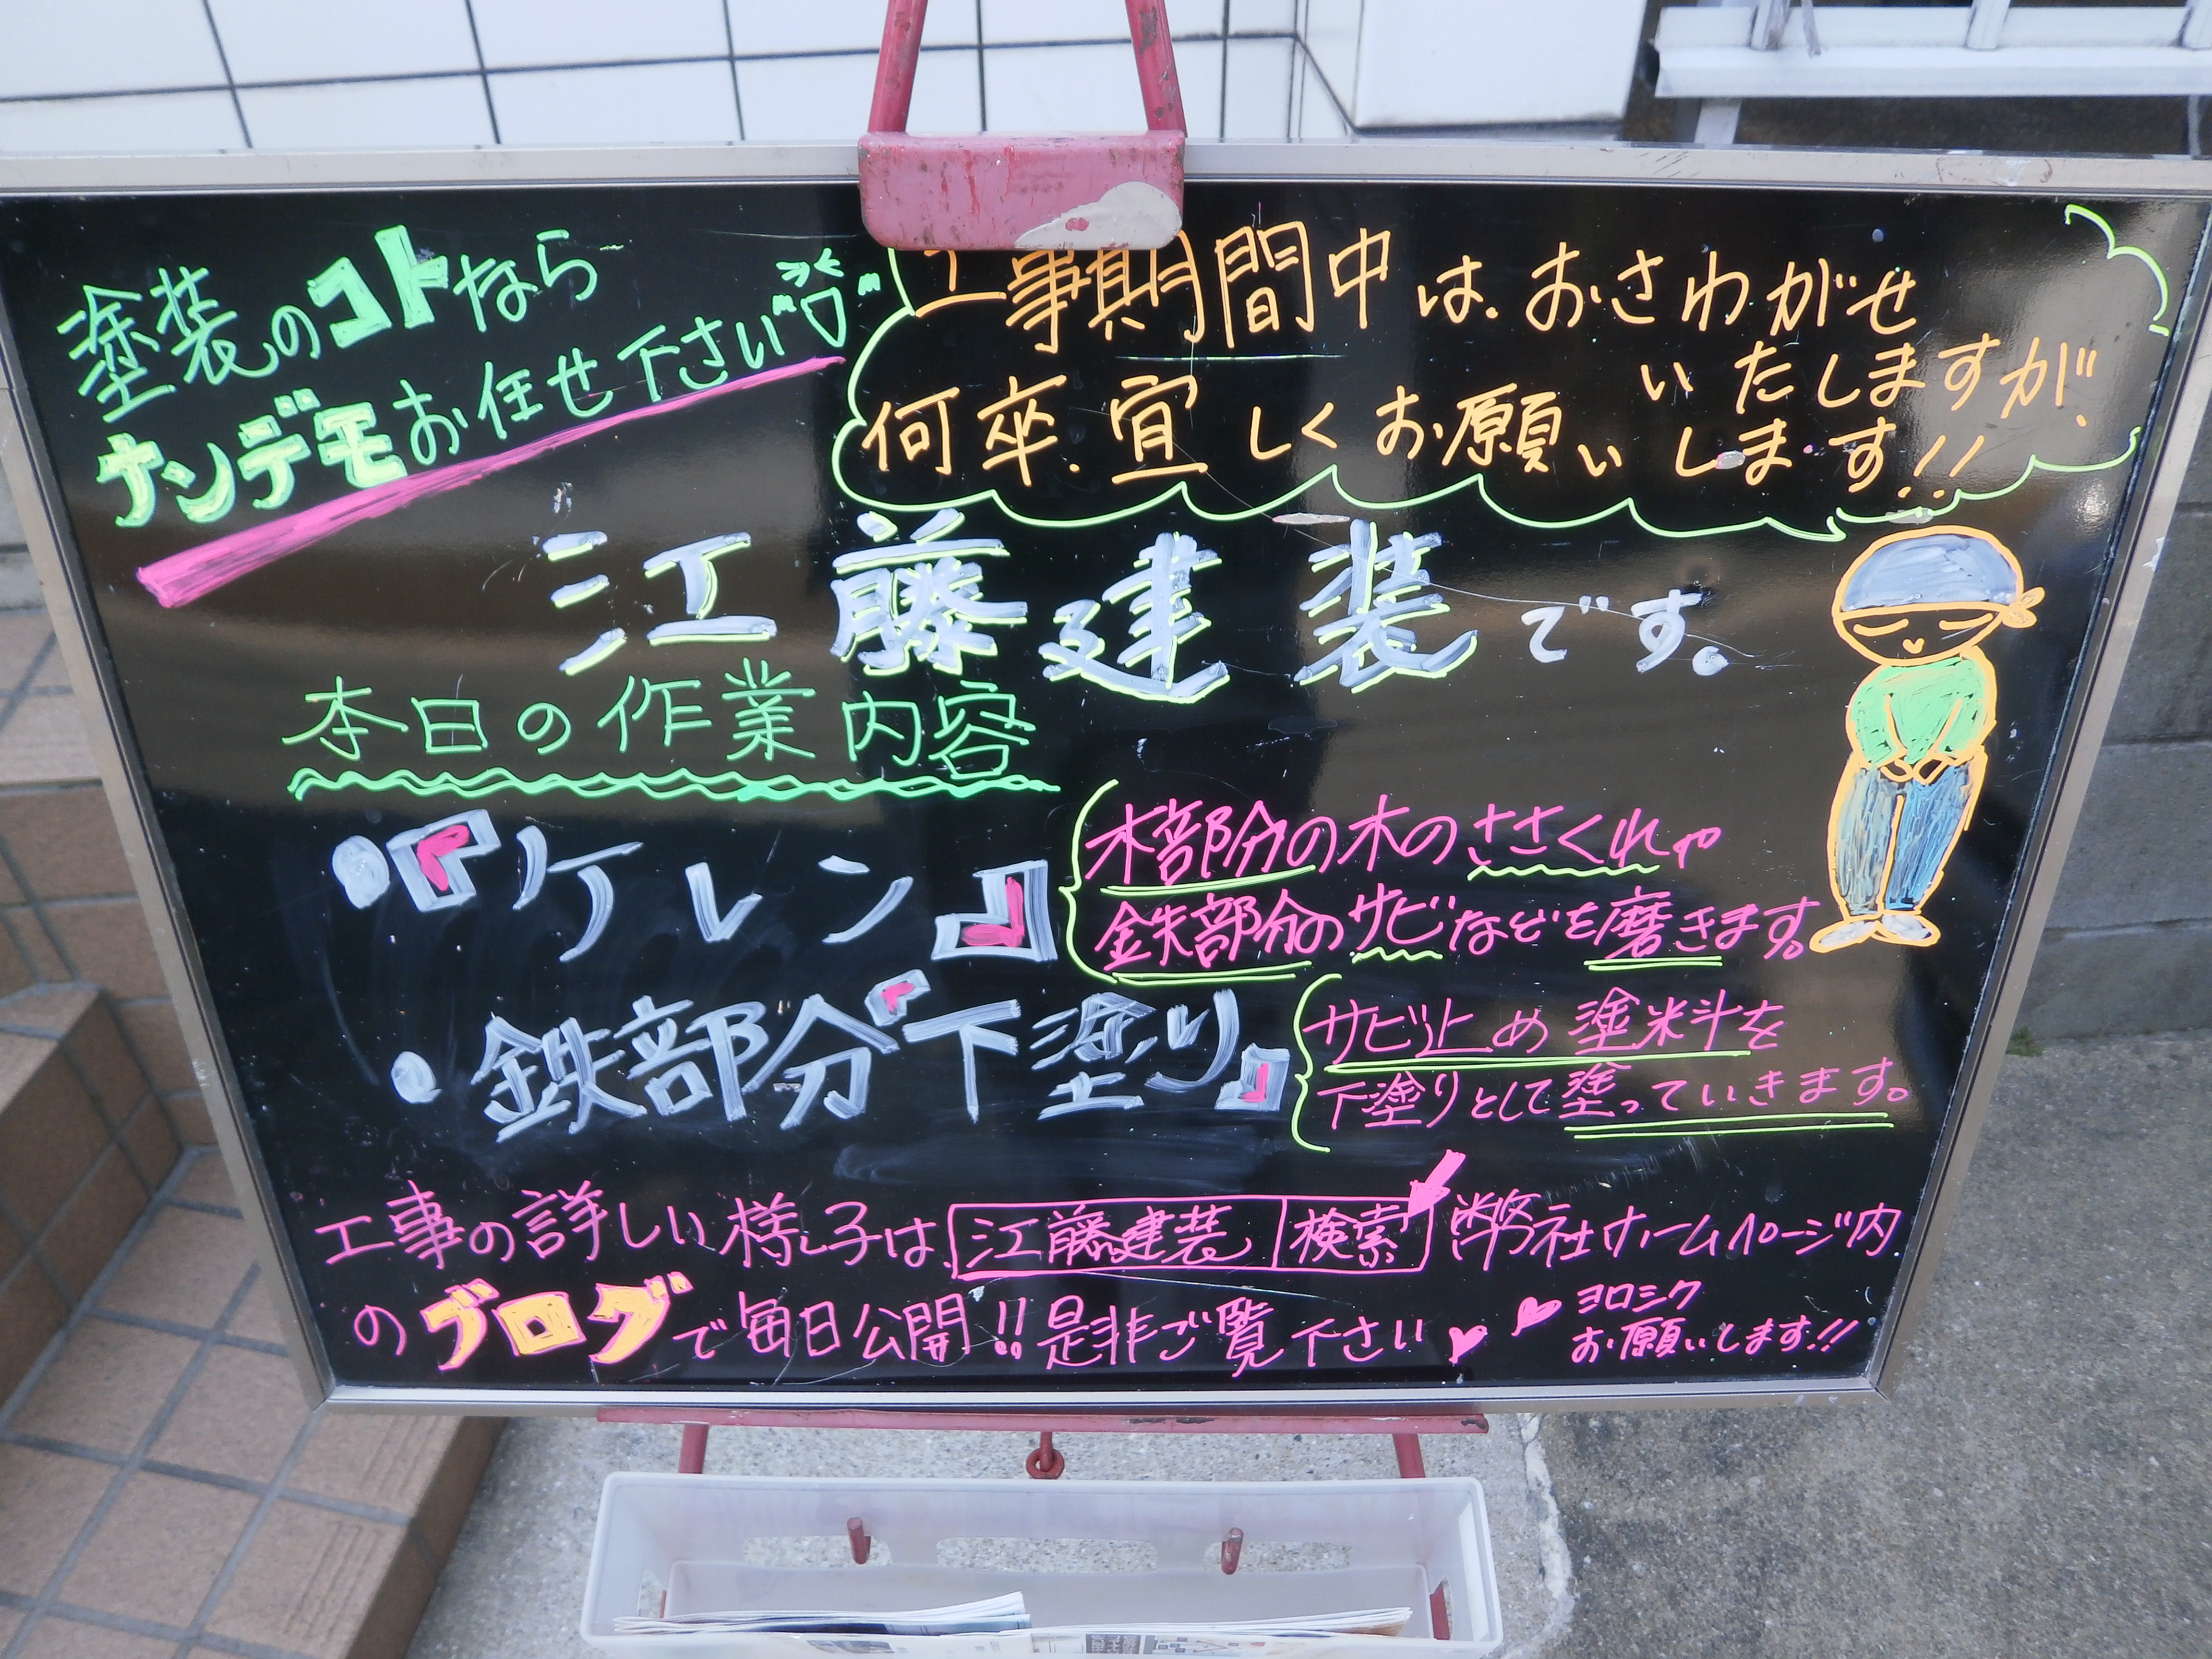 塗装のコトなら
ナンデモお任せ下さい
工事期間中は、おさわがせ
いたしますが、
何卒、宜しくお願いします!!
江藤建装です。
本日の作業内容
●『ケレン』
木部分の木のささくれや
鉄部分のサビなどを磨きます。
・鉄部分『下塗り』
サビ止め塗料を
下塗りとして塗っていきます。
工事の詳しい様子は、江藤建装 検索 弊社ホームページ内
のブログで毎日公開!!是非ご覧下さい♥
♥ヨロシク
お願いします!!